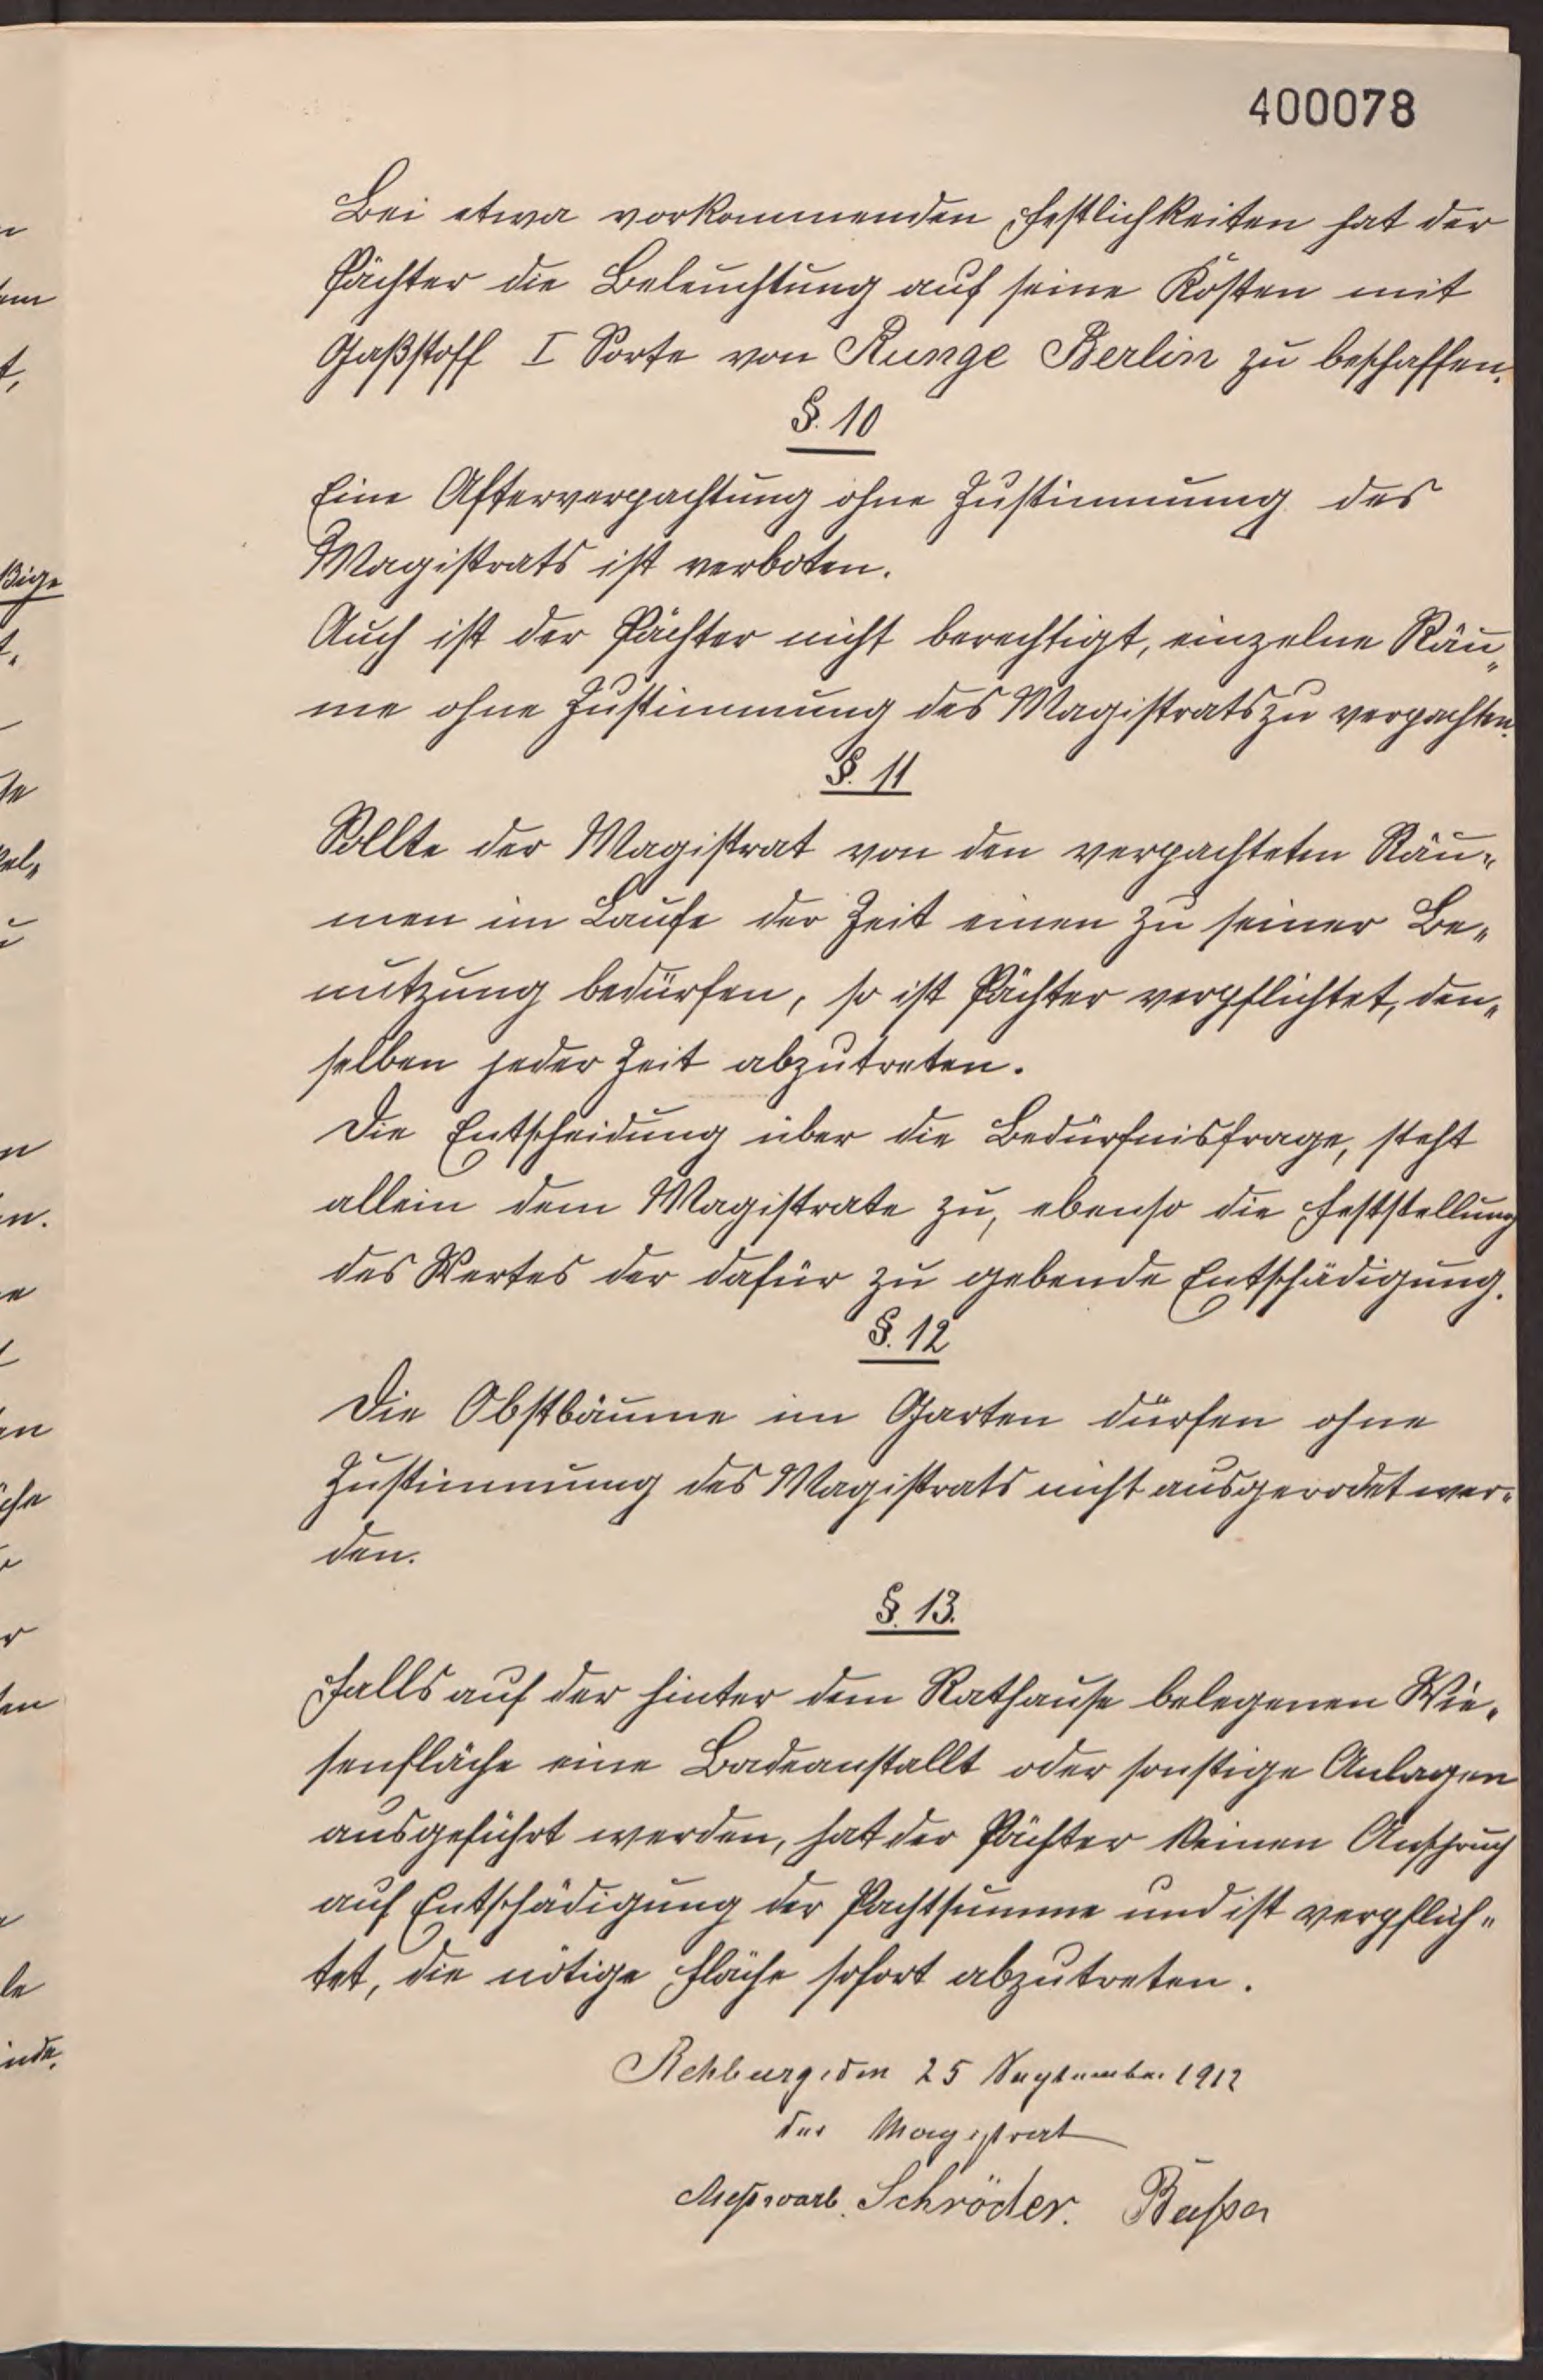 400078
Bei etwa vorkommenden Festlichkeiten hat der
Pächter die Beleuchtung auf seine Kosten mit
Gaßstoff I Sorte von Runge Berlin zu beschaffen.
§. 10
Eine Afterverpachtung ohne Zustimmung des
Magistrats ist verboten.
Auch ist der Pächter nicht berechtigt, einzelne Räu„
me ohne Zustimmung des Magistrats zu verpachten.
§. 11
Sollte der Magistrat von den verpachteten Räu„
men im Laufe der Zeit einen zu seiner Be„
nutzung bedürfen, so ist Pächter verpflichtet, den„
selben jeder Zeit abzutreten.
Die Entscheidung über die Bedürfnisfrage, steht
allein dem Magistrate zu, ebenso die Feststellung
des Wertes der dafür zu gebende Entschädigung.
§. 12
Die Obstbäume im Garten dürfen ohne
Zustimmung des Magistrats nicht ausgerodet wer„
den.
§. 13.
Falls auf der hinter dem Rathause belegenen Wie„
senfläche eine Badeanstallt oder sonstige Anlagen
ausgeführt werden, hat der Pächter keinen Anspruch
auf Entschädigung der Pachtsumme und ist verpflich„
tet, die nötige Fläche sofort abzutreten.
Rehburg, den 25 September 1912
der Magistrat
Meßwarb. Schröder. Bußer